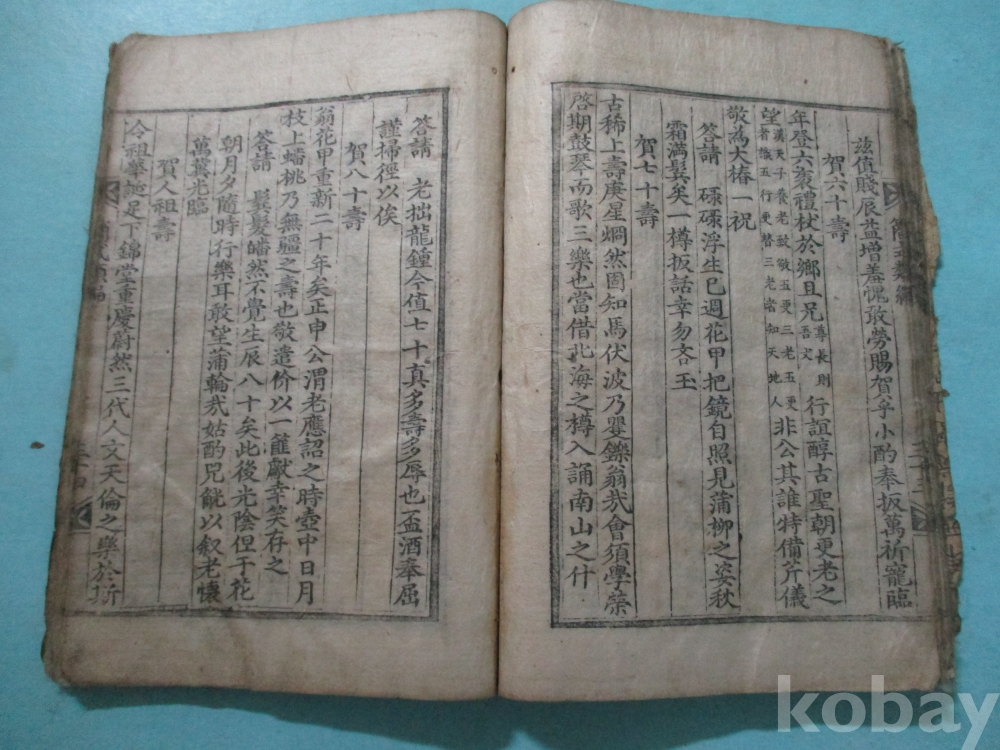 茲值賤辰益增羞愧敢勞賜賀乎小酌奉扳萬祈寵臨
賀六十壽
年登六袠禮杖於鄉且兄尊長則吾丈行誼醇古聖朝更老之
望漢天子養老致敬五更三老五更者識五行更替三老者知天地人非公其誰特備芹儀
敬為大椿一祝
答請 碌碌浮生已週花甲把鏡自照見蒲柳之姿秋
霜滿鬂矣一樽扳話幸勿吝玉
賀七十壽
古稀上壽庚星烱然固知馬伏波乃矍鑠翁㢤會須學榮
啓期鼓琴而歌三樂也當借北海之樽入誦南山之什
答請 老拙龍鍾今值七十真多壽多辱也盃酒奉屈
謹掃徑以俟
賀八十壽
翁花甲重新二十年矣正申公渭老應詔之時壺中日月
枝上蟠桃乃無疆之壽也敬遣价以一蓷獻幸笑存之
答請 鬚髮皤然不覺生辰八十矣此後光陰但干花
朝月夕隨時行樂耳敢望蒲輪㢤姑酌兄觥以叙老懷
萬冀光臨
賀人祖壽
令祖華誕足下錦堂重慶蔚然三代人文天倫之樂於斯
kobay